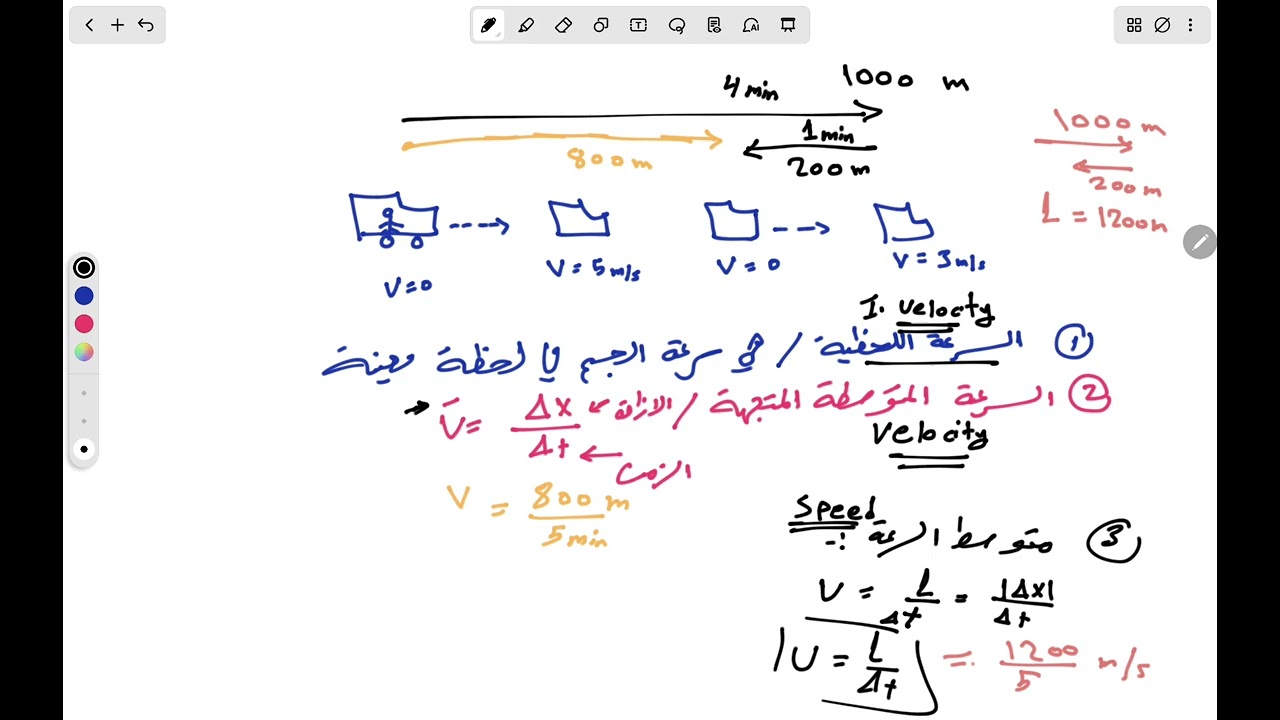 4 min 1000 m
1 min
800 m 200 m
1000 m
200 m
L = 1200m
V=0 V= 5 m/s V= 0 V= 3 m/s
I. velocity
① السرعة اللحظية / هي سرعة الجسم في لحظة معينة
② السرعة المتوسطة المتجهة / الازاحة
V = ΔX / Δt
الزمن
Velocity
V = 800 m / 5 min
Speed
③ متوسط السرعة :-
V = L / Δt = |ΔX| / Δt
V = L / Δt = 1200 / 5 m/s